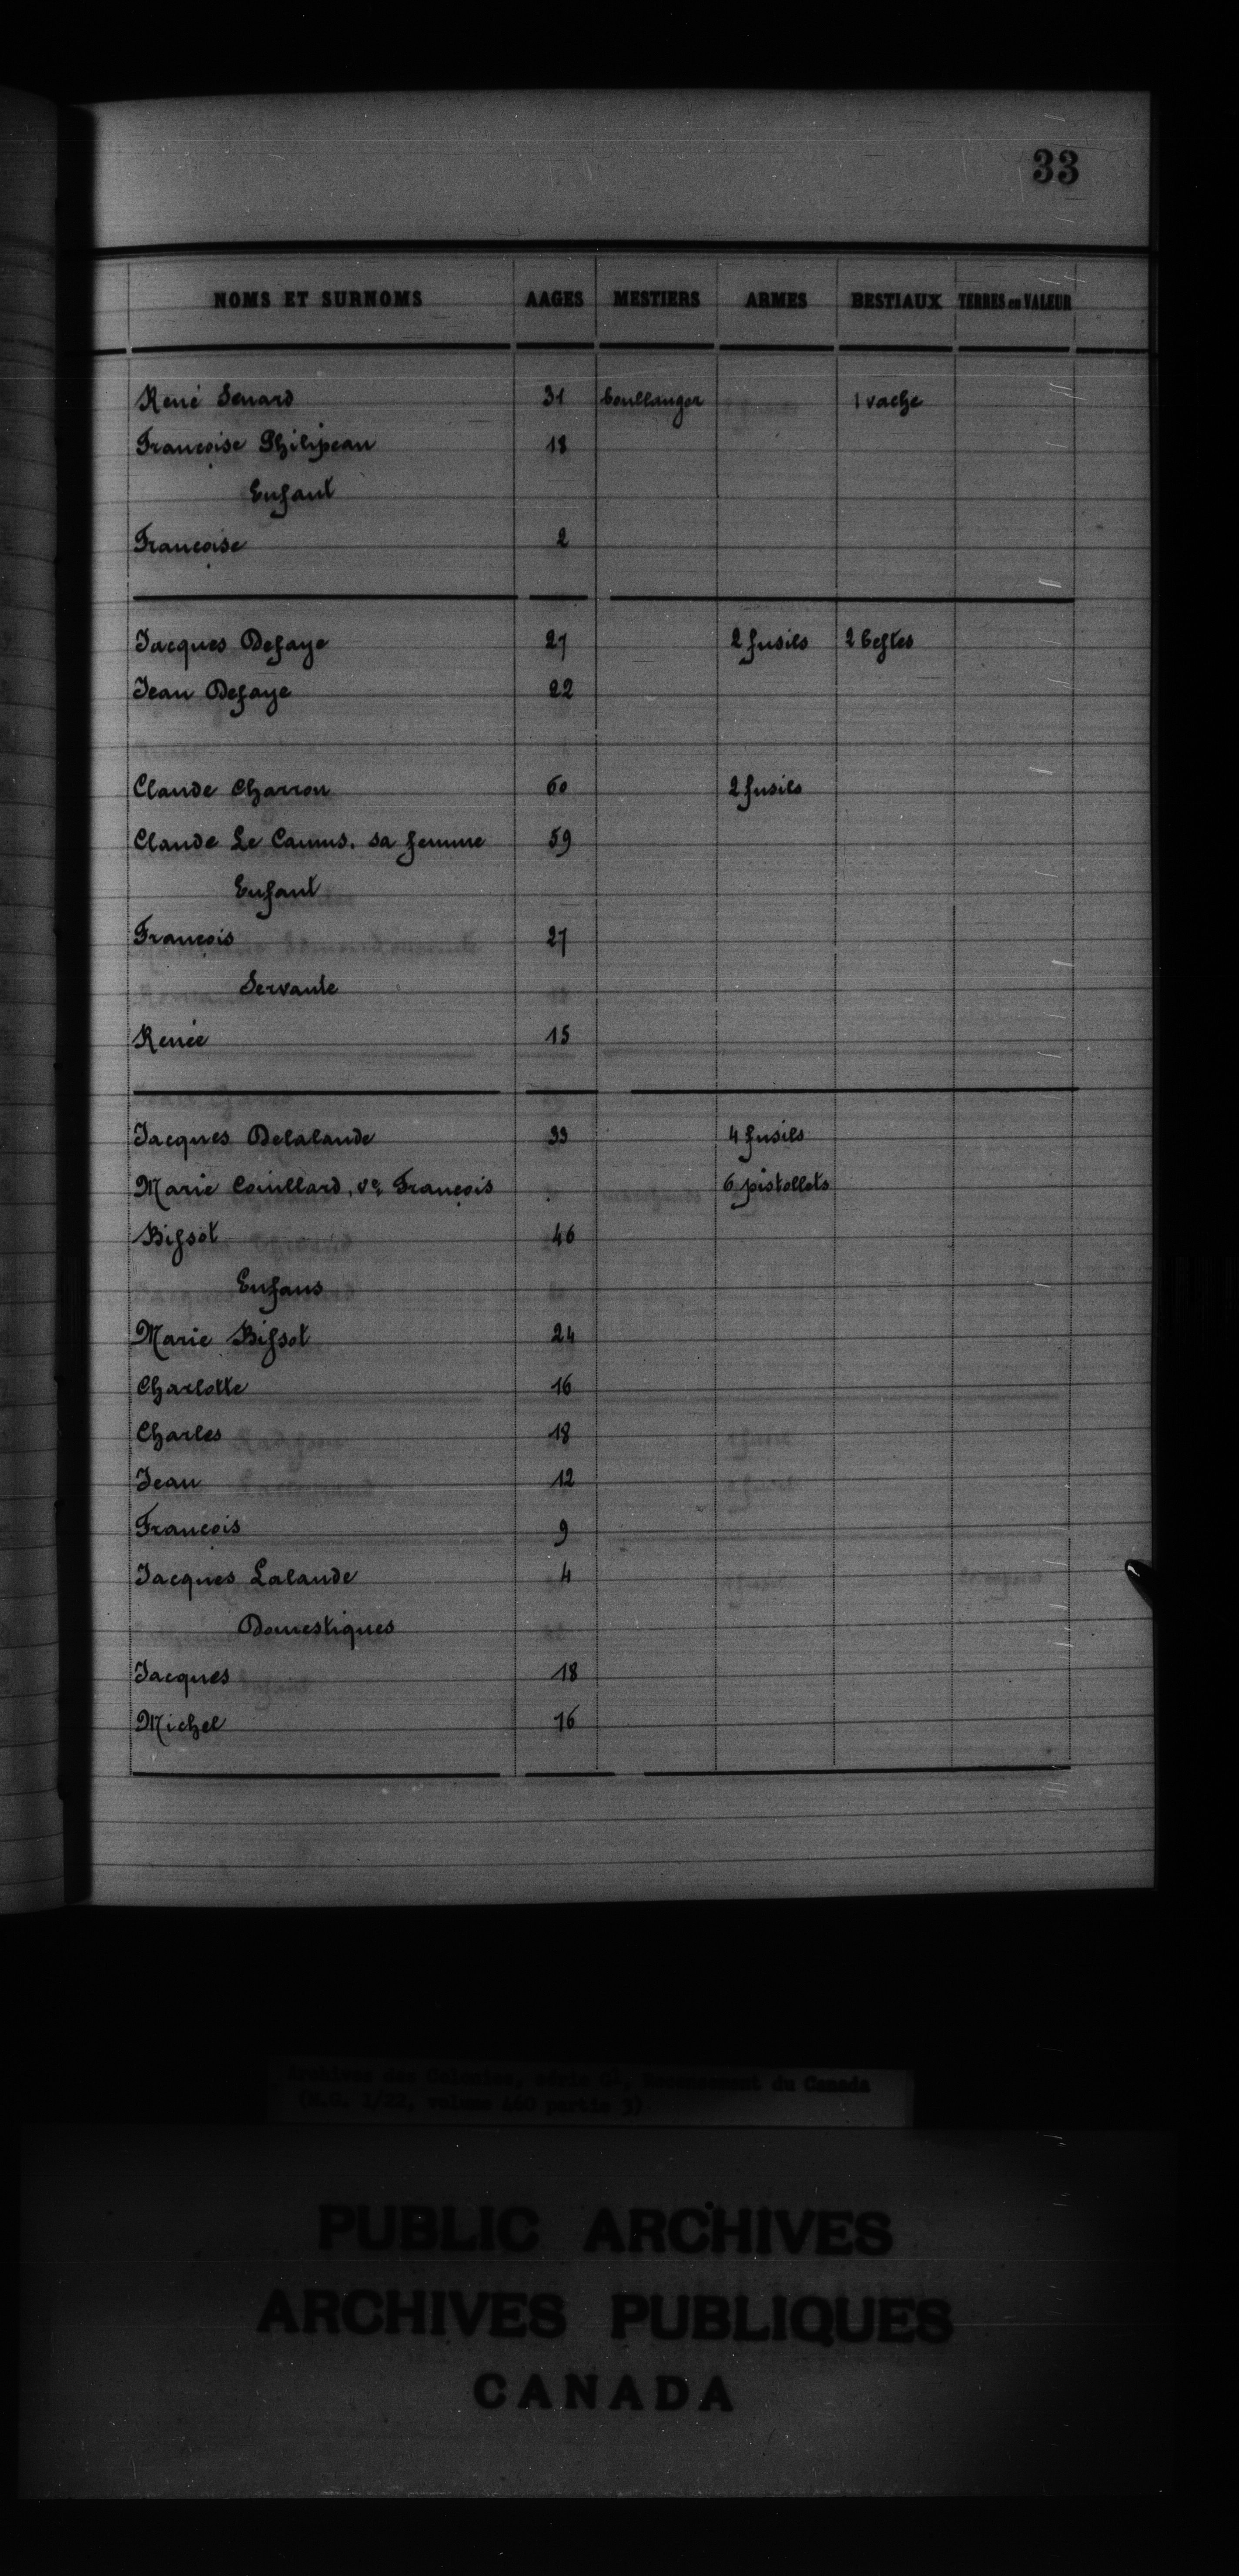 33
NOMS ET SURNOMS AAGES MESTIERS ARMES BESTIAUX TERRES en VALEUR
René Senard 31 boullanger 1 vache
Françoise Philipeau 18
Enfant
Françoise 2
Jacques Defaye 27 2 fusils 2 bestes
Jean Defaye 22
Claude Charron 60 2 fusils
Claude Le Camus, sa femme 59
Enfant
François 27
Servante
Renée 15
Jacques Delalande 33 4 fusils
Marie Couillard, ve François 6 pistollets
Bissot 46
Enfans
Marie Bissot 24
Charlotte 16
Charles 18
Jean 12
François 9
Jacques Lalande 4
Domestiques
Jacques 18
Michel 16
Archives des Colonies, série G1, Recensement du Canada
(M.G. 1/22, volume 460 partie 3)
PUBLIC ARCHIVES
ARCHIVES PUBLIQUES
CANADA